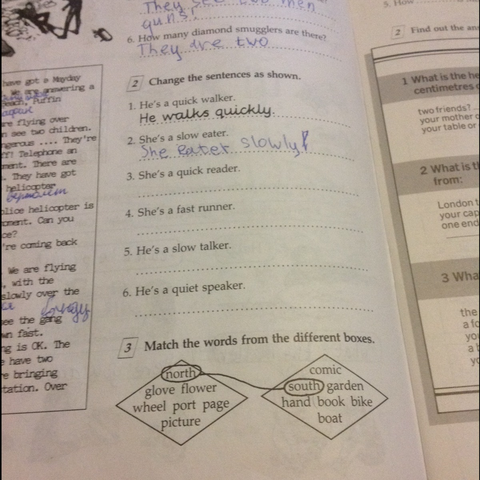 They see two men
guns.
6. How many diamond smugglers are there?
They are two
2 Change the sentences as shown.
1. He's a quick walker.
He walks quickly.
2. She's a slow eater.
She eater slowly
3. She's a quick reader.
4. She's a fast runner.
5. He's a slow talker.
6. He's a quiet speaker.
3 Match the words from the different boxes.
north
glove flower
wheel port page
picture
comic
south garden
hand book bike
boat
have got a Mayday
We are answering a
Beach, Puffin
re flying over
n see two children.
ngerous .... They're
ff! Telephone an
ment. There are
. They have got
helicopter
вертолет
olice helicopter is
oment. Can you
ce?
're coming back
We are flying
, with the
slowly over the
ee the gang
wn fast.
ng is OK. The
e have two
re bringing
tation. Over
5. How
2 Find out the an
1 What is the he
centimetres
two friends?
your mother o
your table or
2 What is th
from:
London t
your cap
one end
3 Wha
the
a fo
you
a b